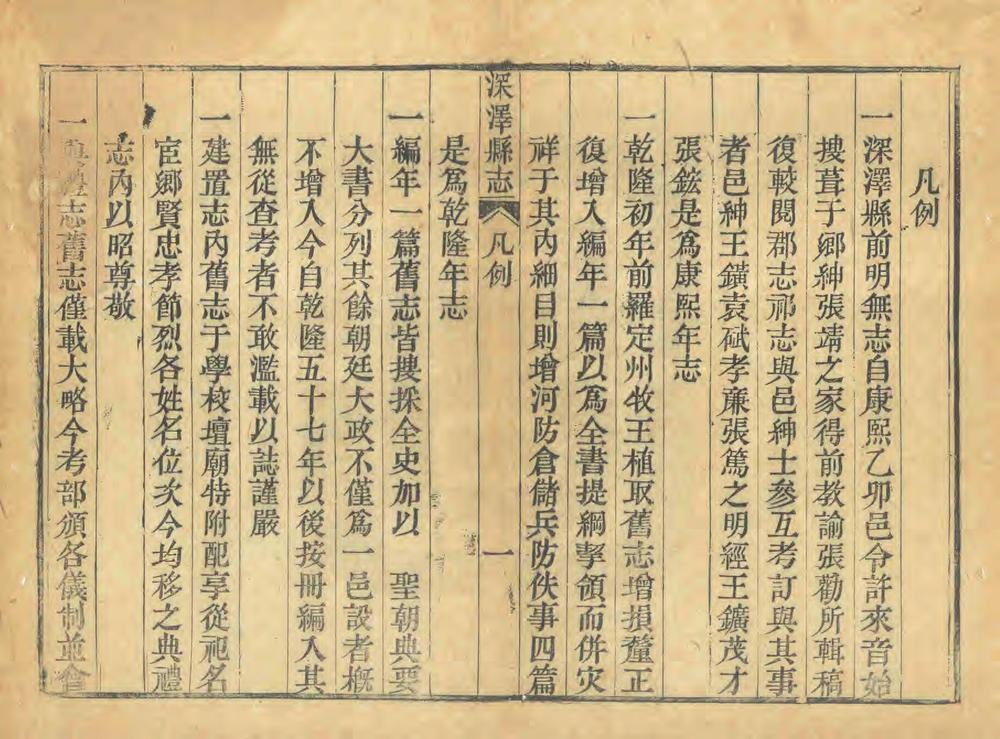 凡例
一深澤縣前明無志自康熙乙卯邑令許來音始
搜葺于鄉紳張靖之家得前教諭張勸所輯稿
復較閱郡志祁志與邑紳士參互考訂與其事
者邑紳王鐄袁碔孝亷張篤之明經王鑛茂才
張鋐是爲康熙年志
一乾隆初年前羅定州牧王植取舊志增損釐正
復增入編年一篇以爲全書提綱挈領而併灾
祥于其內細目則增河防倉儲兵防佚事四篇
深澤縣志 凡例 一
是爲乾隆年志
一編年一篇舊志皆搜採全史加以 聖朝典要
大書分列其餘朝廷大政不僅爲一邑設者槪
不增入今自乾隆五十七年以後按冊編入其
無從查考者不敢濫載以誌謹嚴
一建置志內舊志于學校壇廟特附配享從祀名
宦鄉賢忠孝節烈各姓名位次今均移之典禮
志內以昭尊敬
一典禮志舊志僅載大略今考部頒各儀制並會